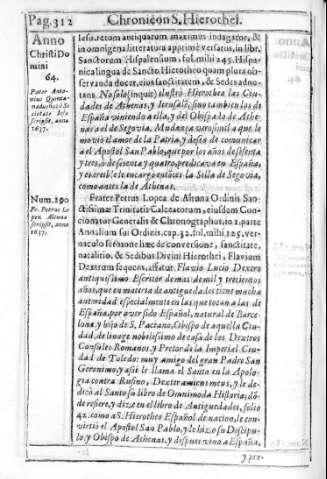 Pag.312 Chronicon S. Hierothei.
Anno
Christi Domini
64.
Pater Antonius
Quintanadueñas è Societate Iesu
scripsit, anno
1637.
Iesu, rerum antiquarum maximus indagator, &
in omnigena litteratura apprimè versatus, in libr.
Sanctorum Hispalensium, fol. mihi 245. Hispanica
lingua de Sancto Hierotheo quam plura observanda
docet, eius sanctitatem, & Sedes adnotans.
No solo (inquit) ilustrò Hierotheo las Ciudades
de Athenas, y Jerusalẽ, sino tambien las de
España viniendo a ella, y del Obispado de Athenas
a el de Segovia. Mudança verosimil a que le
moviò el amor de la Patria, y deseo de comunicar
a el Apostol San Pablo, que por los años de sesenta
y tres, ò de sesenta y quatro, predicava en España,
y escribe le encargo entõces la Silla de Segovia,
como antes la de Athenas.
Num. 190
Fr. Petrus Lopez
Altuna
scripsit, anno
1637.
Frater Petrus Lopez de Altuna Ordinis Sanctissimæ
Trinitatis Calceatorum, eiusdem Concionator
Generalis & Chronographus, in 1. parte
Annalium sui Ordinis, cap. 32. fol. mihi 125. vernaculo
sermone hæc de conversione, sanctitate,
natalitio, & Sedibus Divini Hierothei, Flavium
Dextrum sequens, affatur. Flavio Lucio Dextro
antiquissimo Escritor de mas de mil y trecientos
años, que en materia de antiguedades tiene mucha
autoridad especialmente en las que tocan a las de
España, por aver sido Español, natural de Barcelona,
y hijo de S. Paciano, Obispo de aquella Ciudad,
de linage nobilissimo de casa de los Dextros
Consules Romanos, y Pretor de la Imperial Ciudad
de Toledo: muy amigo del gran Padre San
Geronimo, y assi le llama el Santo en la Apologia
contra Rufino, Dexter amicus meus, y le dedicò
al Santo su libro de Omnimoda Historia; dõde
refiere, y dize en el libro de Antiguedades, folio
42. como a S. Hierotheo Español de nacion, le convirtiò
el Apostol San Pablo, y le hizo su Discipulo,
y Obispo de Athenas, y despues vino a España,
y pre-